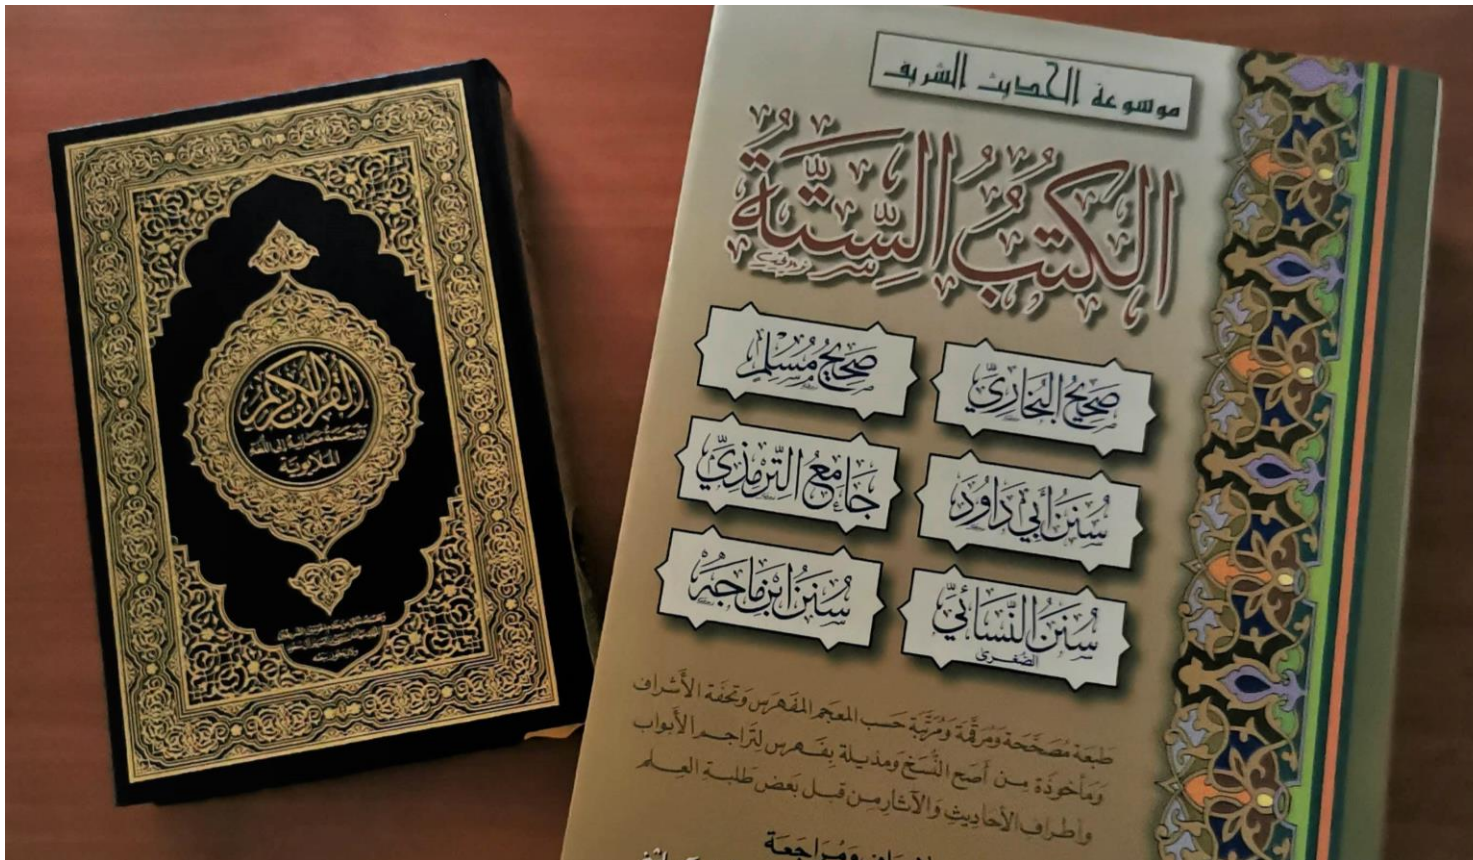 القرآن الكريم
وترجمة معانيه إلى اللغة
الملايوية
موسوعة الحديث الشريف
الكتب الستة
صَحِيحُ البُخَارِيّ
صَحِيحُ مُسْلِم
سُنَنُ أَبِي دَاوُد
جَامِعُ التِّرمذِيّ
سُنَنُ النَّسَائِيّ
الصُّغرىٰ
سُنَنُ ابْنِ مَاجَه
طبعة مصَحّحة ومرقّمة ومرتّبة حَسب المعجم المفهرس وتحفة الأشراف
ومأخوذة من أصح النُّسَخ ومذيلة بفهرس لتراجم الأبواب
وأطراف الأحاديث والآثار من قبل بعض طلبة العِلم
ومُراجَعة